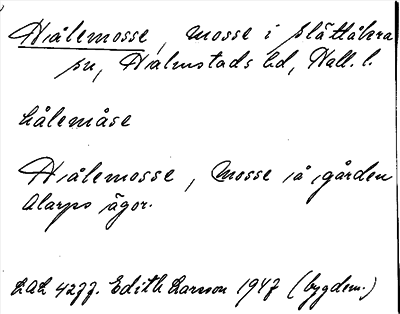 Hålemosse, mosse i Slättåkra
sn, Halmstads hd, Hall. l.
hålemåse
Hålemosse, mosse å gården
Alarps ägor.
LAL 4277. Edith Larsson 1947 (bygdem.)